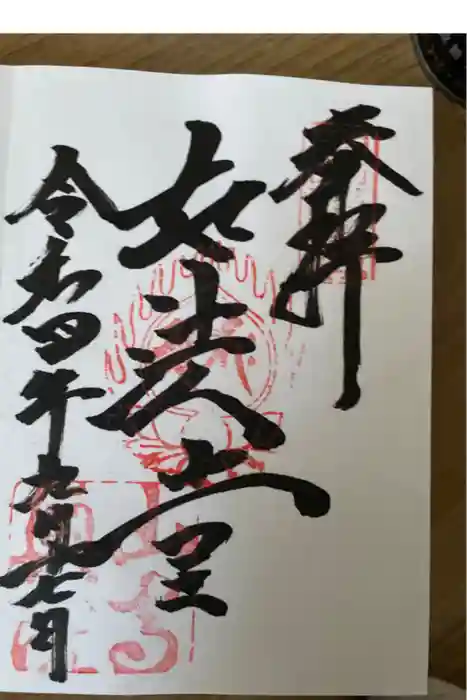 奉拝
如法堂
令和四年九月十七日